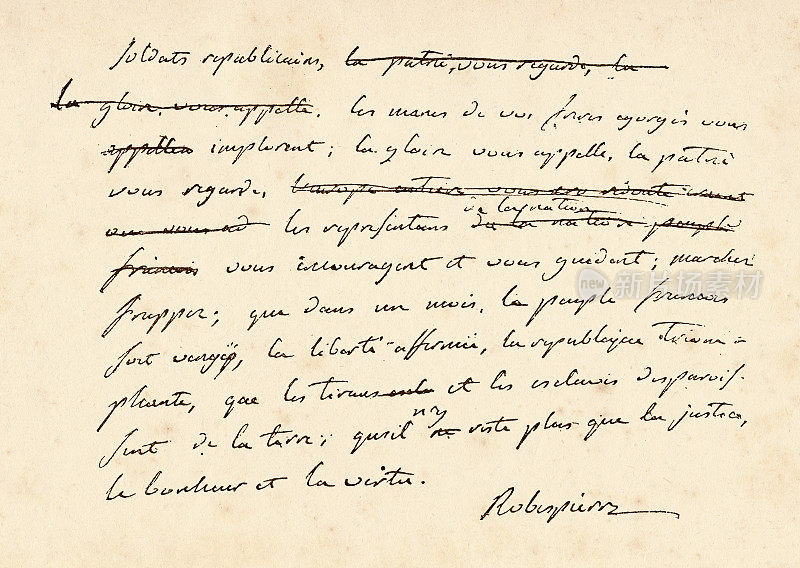 Soldats republicains, la patrie, vous regarde, la
La gloire, vous appelle. les manes de vos freres egorgés vous
appellen implorent; la gloire vous appelle, la patrie
vous regarde, l'europe entiere vous
les representans de la nation du la nation peuple
francais vous encouragent et vous guident; marchez
frappez; que dans un mois, le peuple francais
soit vengé, la liberté affermie, la republique triom=
phante, que les tirans et les esclaves disparois-
sent de la terre; qu'il n'y ne reste plus que la justice,
le bonheur et la vertu.
Robespierre
new
新片场素材